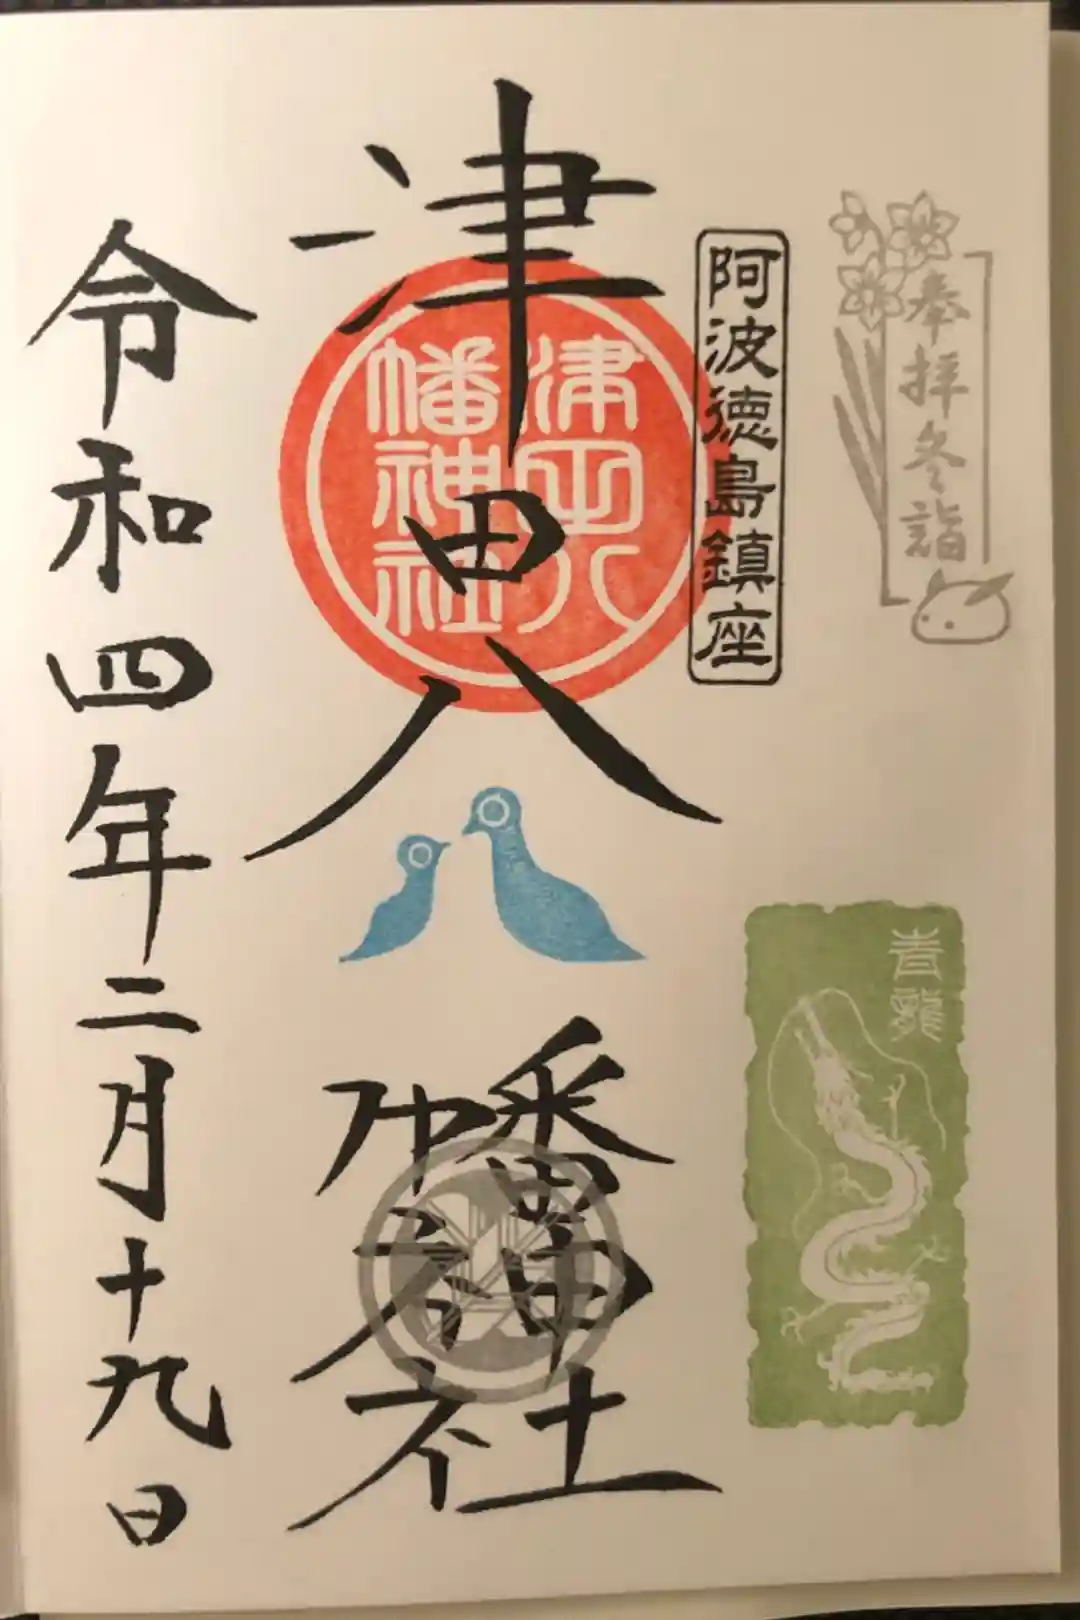 奉拝冬詣
阿波徳島鎮座
青龍
津田八幡神社
津田八
幡神社
令和四年二月十九日